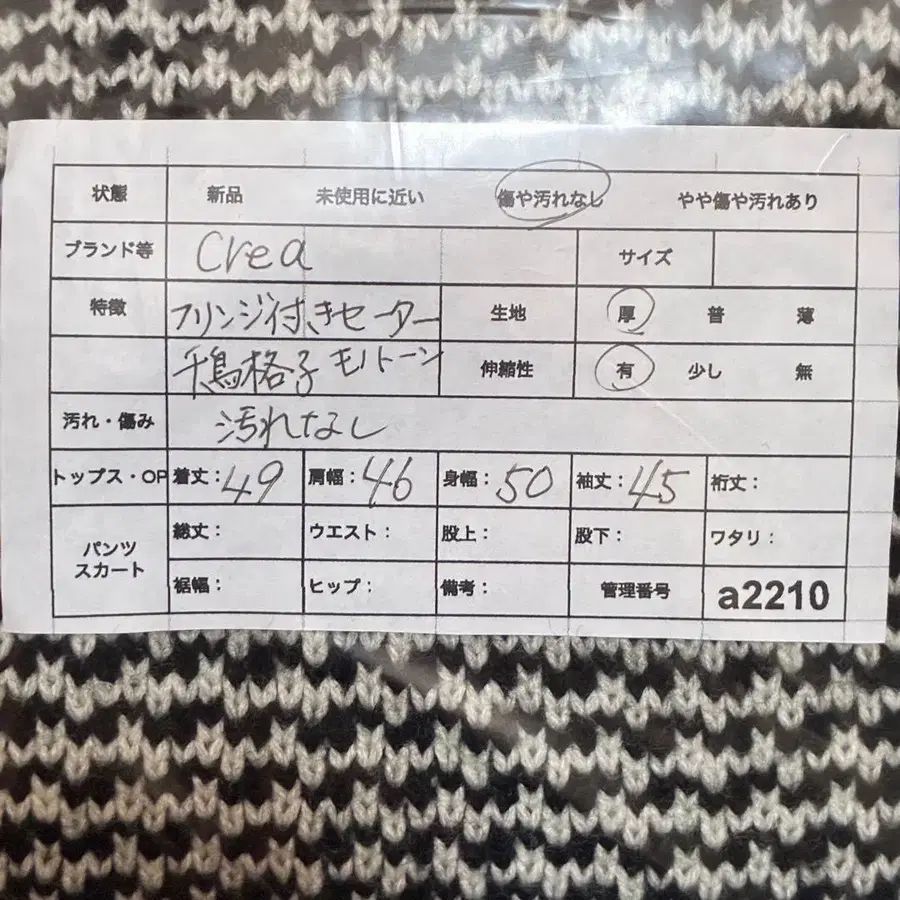 状態 新品 未使用に近い 傷や汚れなし やや傷や汚れあり
ブランド等 Crea サイズ
特徴 フリンジ付きセーター 生地 厚 普 薄
千鳥格子 モノトーン 伸縮性 有 少し 無
汚れ・傷み 汚れなし
トップス・OP 着丈：49 肩幅：46 身幅：50 袖丈：45 裄丈：
パンツ スカート 総丈： ウエスト： 股上： 股下： ワタリ：
裾幅： ヒップ： 備考： 管理番号 a2210